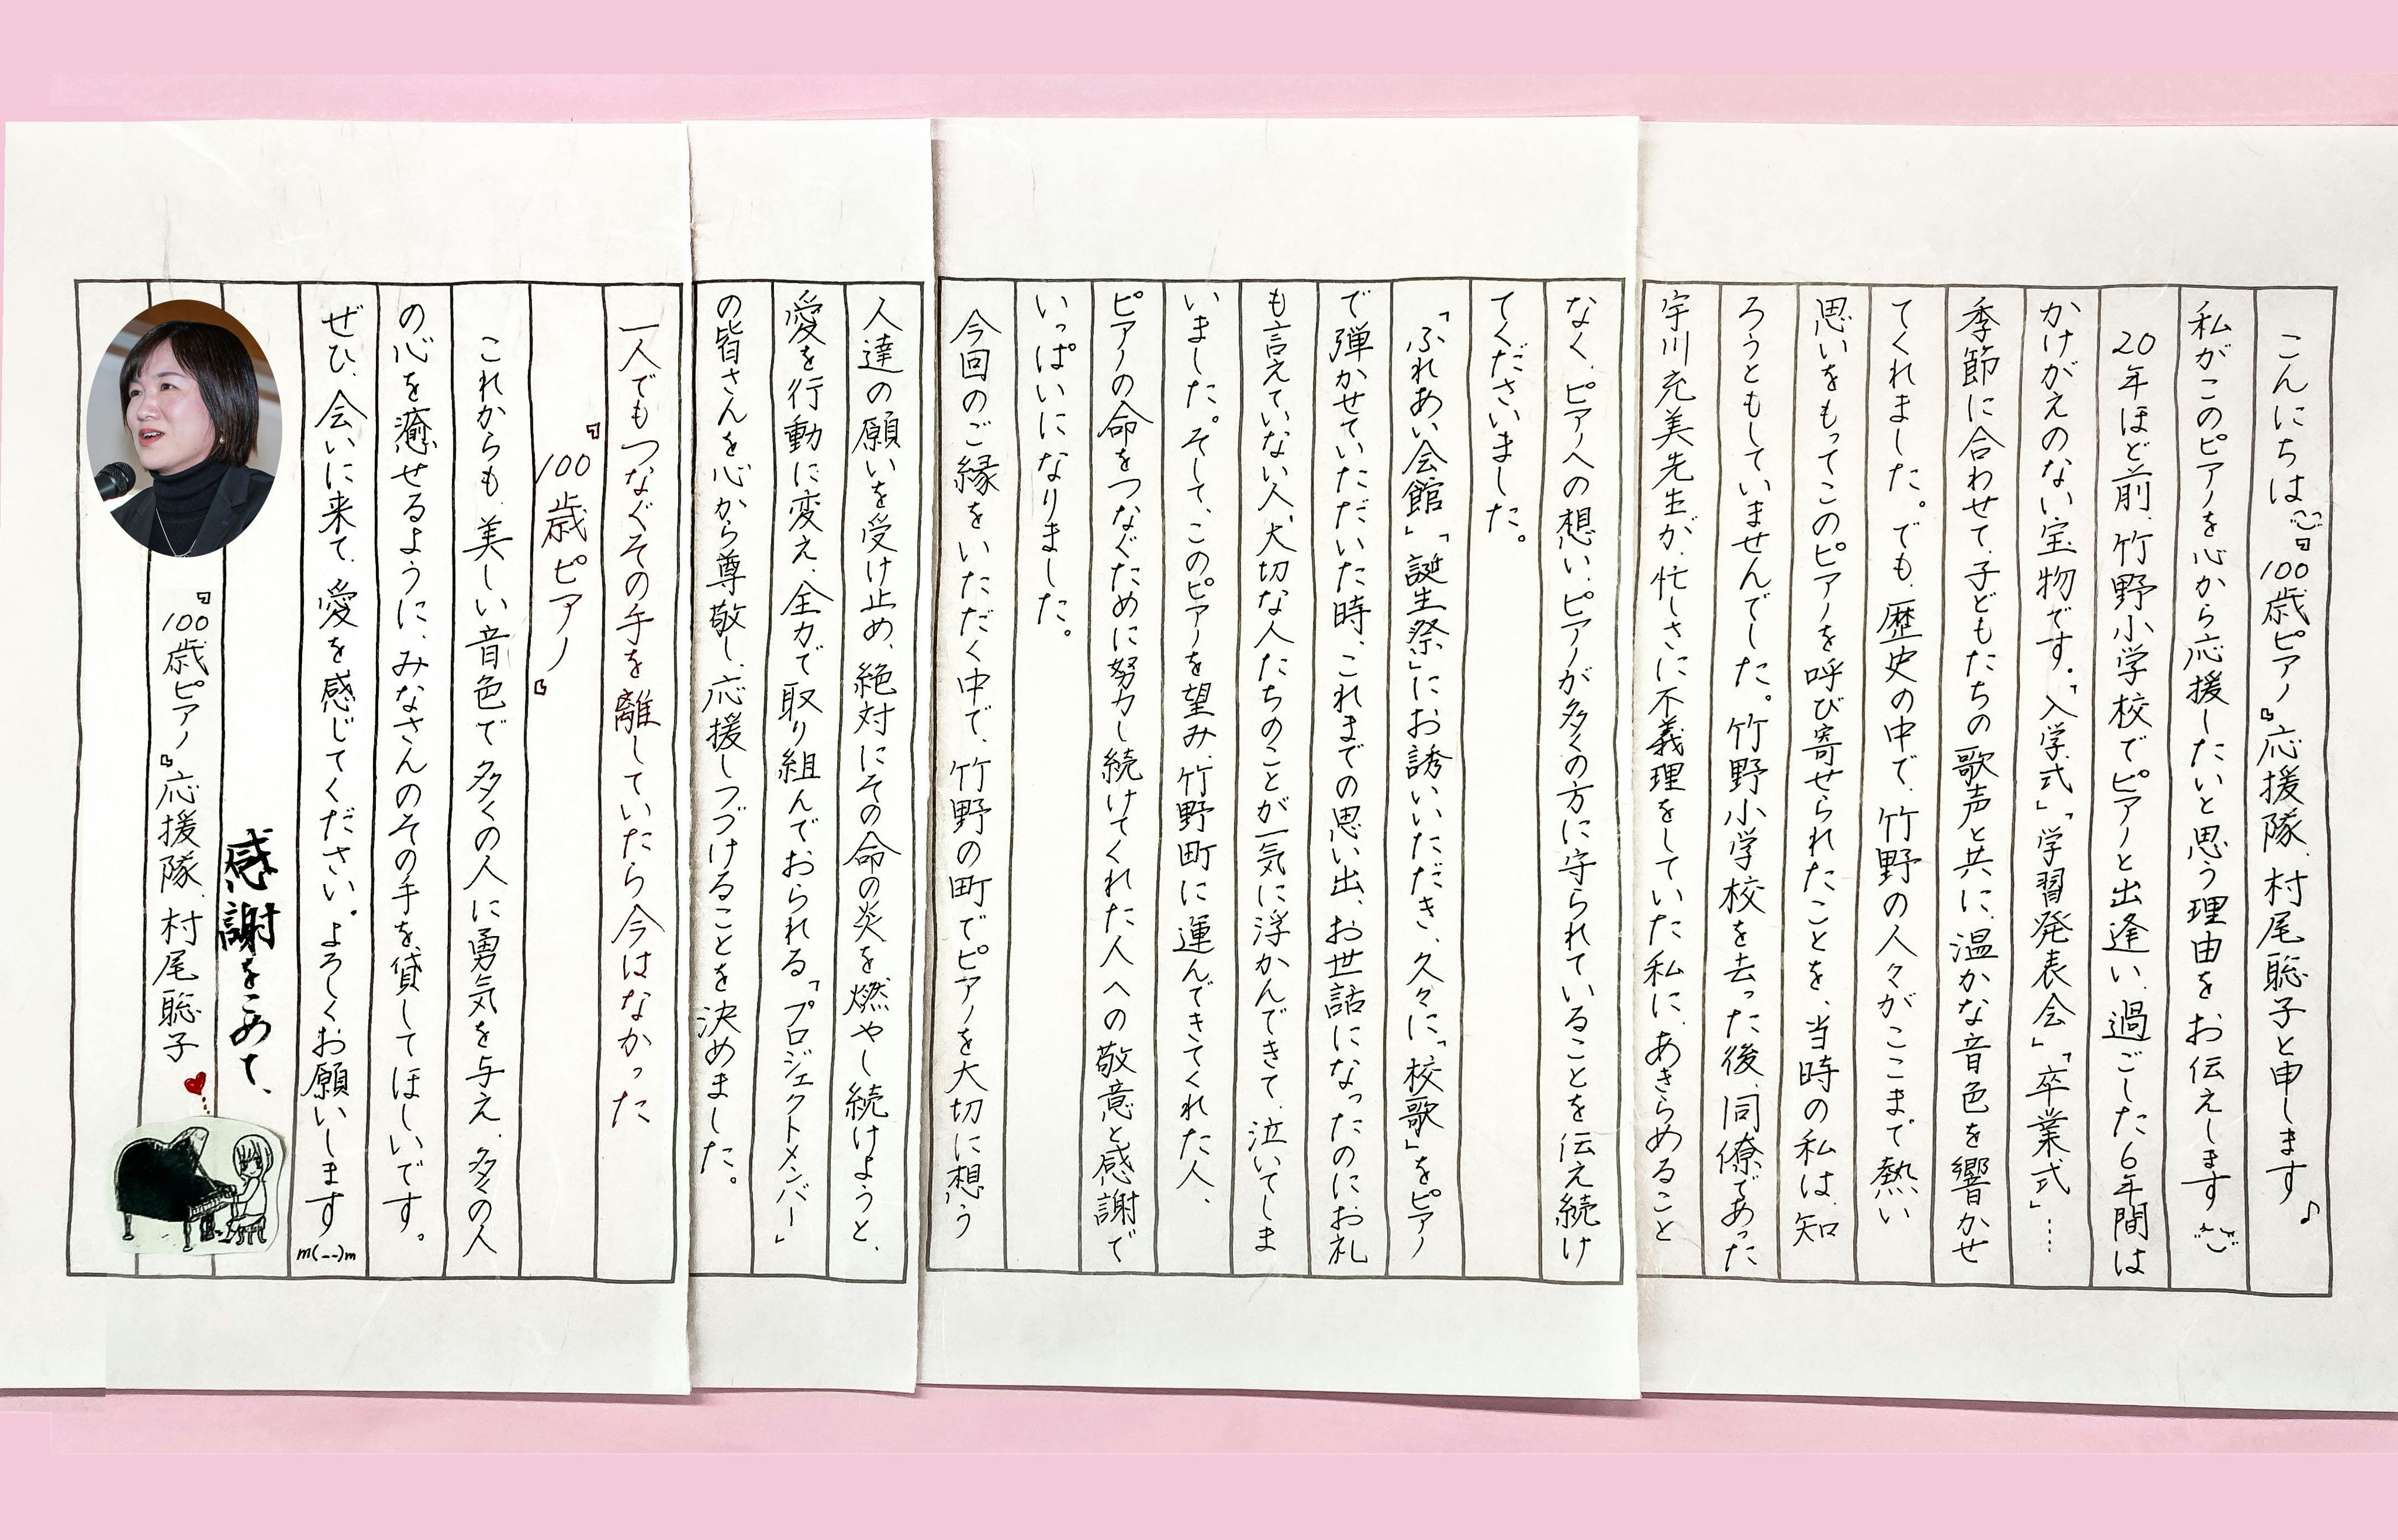 こんにちは『100歳ピアノ』応援隊、村尾聡子と申します♪
私がこのピアノを心から応援したいと思う理由をお伝えします
20年ほど前、竹野小学校でピアノと出逢い、過ごした6年間は
かけがえのない宝物です。「入学式」「学習発表会」「卒業式」……
季節に合わせて、子どもたちの歌声と共に、温かな音色を響かせ
てくれました。でも、歴史の中で、竹野の人々がここまで熱い
思いをもってこのピアノを呼び寄せられたことを、当時の私は、知
ろうともしていませんでした。竹野小学校を去った後、同僚であった
宇川充美先生が、忙しさに不義理をしていた私に、あきらめること
なく、ピアノへの想い、ピアノが多くの方に守られていることを伝え続け
てくださいました。
「ふれあい会館」「誕生祭」にお誘いいただき、久々に「校歌」をピアノ
で弾かせていただいた時、これまでの思い出、お世話になったのにお礼
も言えていない人、大切な人たちのことが一気に浮かんできて、泣いてしま
いました。そして、このピアノを望み、竹野町に運んできてくれた人、
ピアノの命をつなぐために努力し続けてくれた人への敬意と感謝で
いっぱいになりました。
今回のご縁をいただく中で、竹野の町でピアノを大切に想う
人達の願いを受け止め、絶対にその命の炎を燃やし続けようと、
愛を行動に変え、全力で取り組んでおられる「プロジェクトメンバー」
の皆さんを心から尊敬し、応援しつづけることを決めました。
一人でもつなぐその手を離していたら今はなかった
『100歳ピアノ』
これからも、美しい音色で多くの人に勇気を与え、多くの人
の心を癒せるように、みなさんのその手を、貸してほしいです。
ぜひ、会いに来て、愛を感じてください。よろしくお願いします m(__)m
感謝をこめて、
『100歳ピアノ』応援隊、村尾聡子